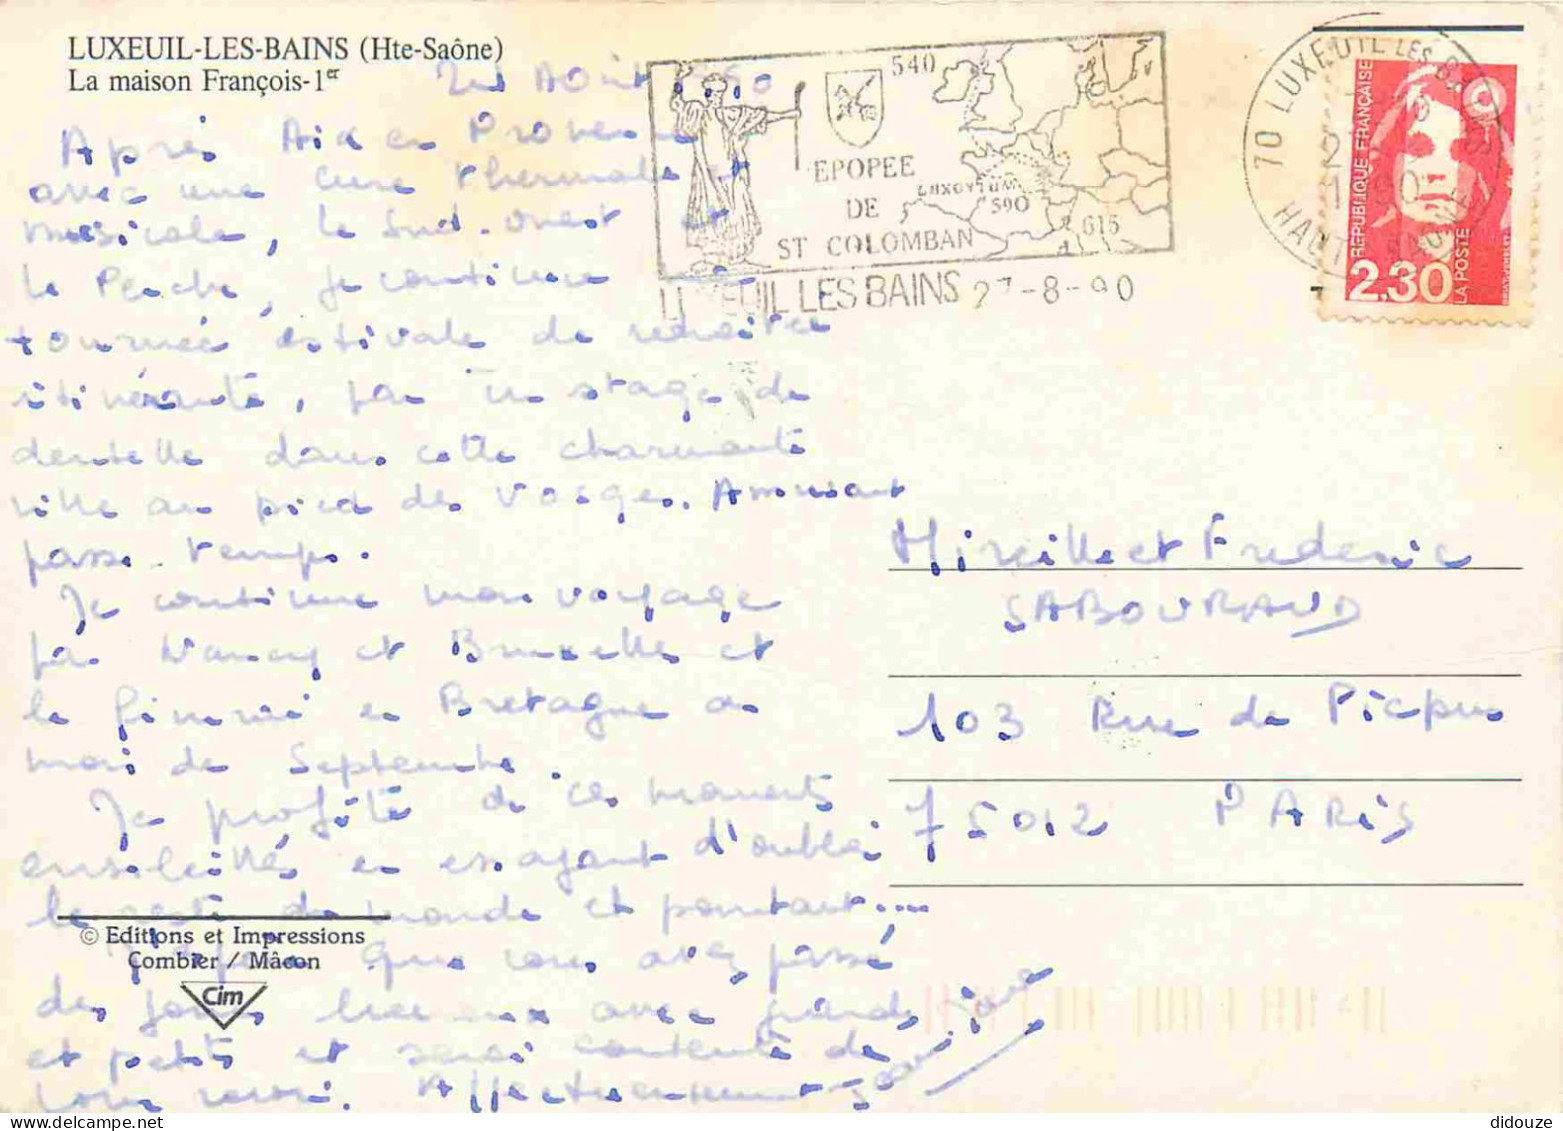 LUXEUIL-LES-BAINS (Hte-Saône)
La maison François-1er
Août
Après Aix en Provence
avec une cure thermale et
musicale, le Sud-ouest et
le Perche, je continue la
tournée estivale de retraitée
itinérante, par un stage de
dentelle dans cette charmante
ville au pied des Vosges. Amusant
passe-temps.
Je continue mon voyage
par Nancy et Bruxelles et
le finirai en Bretagne au
mois de Septembre.
Je profite de ces moments
ensoleillés en essayant d'oublier
le reste du monde et pourtant....
J'espère que vous avez passé
des jours heureux avec grands
et petits et serai contente de
vous revoir. Affectueusement
© Editions et Impressions
Combier / Mâcon
Cim
540
EPOPEE
DE
ST COLOMBAN
LUXOVIUM
590
615
LUXEUIL LES BAINS 27-8-90
70 LUXEUIL LES B.
HAUTE SAONE
REPUBLIQUE FRANÇAISE
2,30
LA POSTE
Mireille et Frederic
SABOURAUD
103 Rue de Picpus
75012 PARIS
didouze